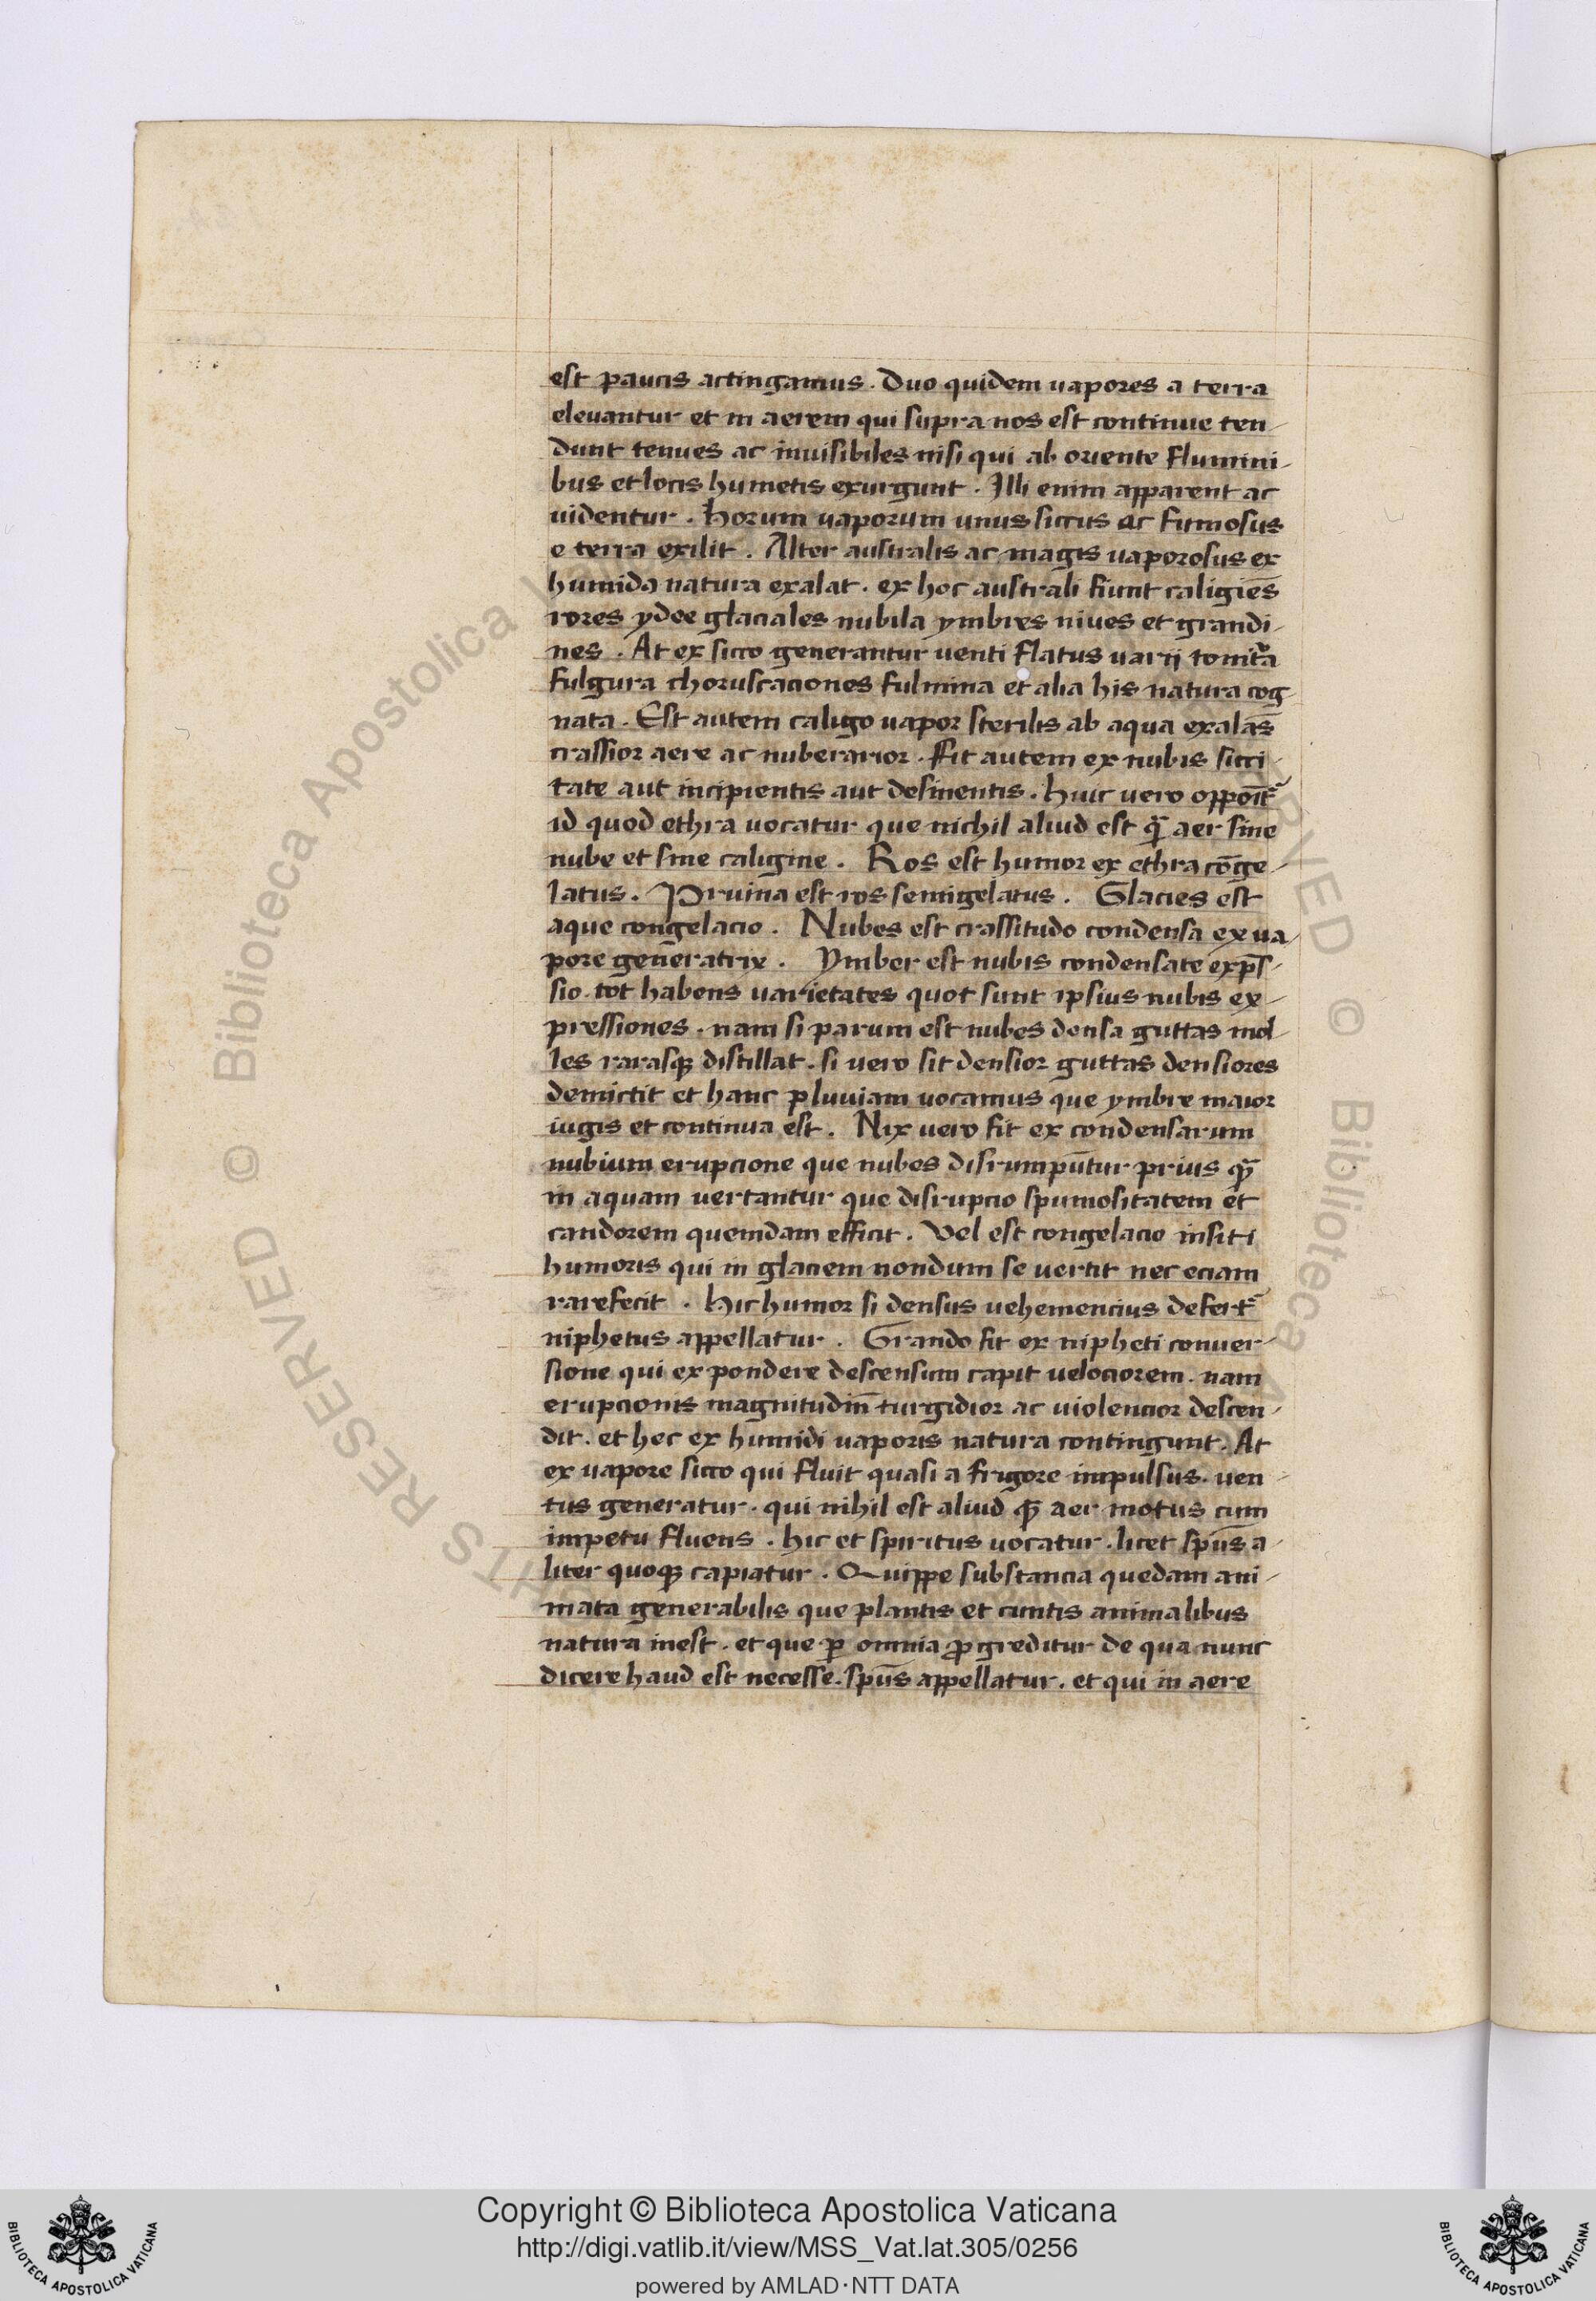 est paucis actingamus. Duo quidem vapores a terra
elevantur et in aerem qui supra nos est continue ten-
dunt tenues ac invisibiles nisi qui ab oriente flumini-
bus et locis humetis exurgunt. Illi enim apparent ac
videntur. Horum vaporum unus siccus ac fumosus
e terra exilit. Alter australis ac magis vaporosus ex
humida natura exalat. ex hoc australi fiunt caligiēs
rores ydee glaciales nubila ymbres nives et grandi-
nes. At ex sicco generantur venti flatus varij tonitr̄a
fulgura choruscaciones fulmina et alia his natura cog-
nata. Est autem caligo vapor sterilis ab aqua exalās
crassior aere ac nube rarior. Fit autem ex nubis sicci-
tate aut incipientis aut desinentis. Huic vero opponit᷑
id quod ethra vocatur que nichil aliud est q̄ȝ aer sine
nube et sine caligine. Ros est humor ex ethra cōge-
latus. Pruina est ros semigelatus. Glacies est
aque congelacio. Nubes est crassitudo condensa ex va-
pore generatrix. Ymber est nubis condensate exp̄s-
sio. tot habens varietates quot sunt ipsius nubis ex-
pressiones. nam si parum est nubes densa guttas mol-
les rarasqȝ distillat. si vero sit densior guttas densiores
demictit et hanc pluviam vocamus que ymbre maior
iugis et continua est. Nix vero fit ex condensarum
nubium erupcione que nubes disrumpūtur prius q̄ȝ
in aquam vertantur que disrupcio spumositatem et
candorem quemdam efficit. Vel est congelacio insiti
humoris qui in glaciem nondum se vertit nec eciam
rarefecit. Hic humor si densus vehemencius defert᷑
niphetus appellatur. Grando fit ex nipheti conver-
sione qui ex pondere descensum capit velociorem. nam
erupcionis magnitudin̄ turgidior ac violencior descen-
dit. et hec ex humidi vaporis natura contingunt. At
ex vapore sicco qui fluit quasi a frigore impulsus. ven-
tus generatur. qui nihil est aliud q̄ȝ aer motus cum
impetu fluens. hic et spiritus vocatur. licet sp̄us a-
liter quoqȝ capiatur. Quippe substancia quedam ani-
mata generabilis que plantis et cuntis animalibus
natura inest. et que ꝑ omnia ꝓgreditur de qua nunc
dicere haud est necesse. sp̄us appellatur. et qui in aere
© Biblioteca Apostolica Vaticana
RIGHTS RESERVED © Biblioteca Apostolica
RESERVED © Biblioteca A
Copyright © Biblioteca Apostolica Vaticana
http://digi.vatlib.it/view/MSS_Vat.lat.305/0256
powered by AMLAD·NTT DATA
BIBLIOTECA APOSTOLICA VATICANA
BIBLIOTECA APOSTOLICA VATICANA